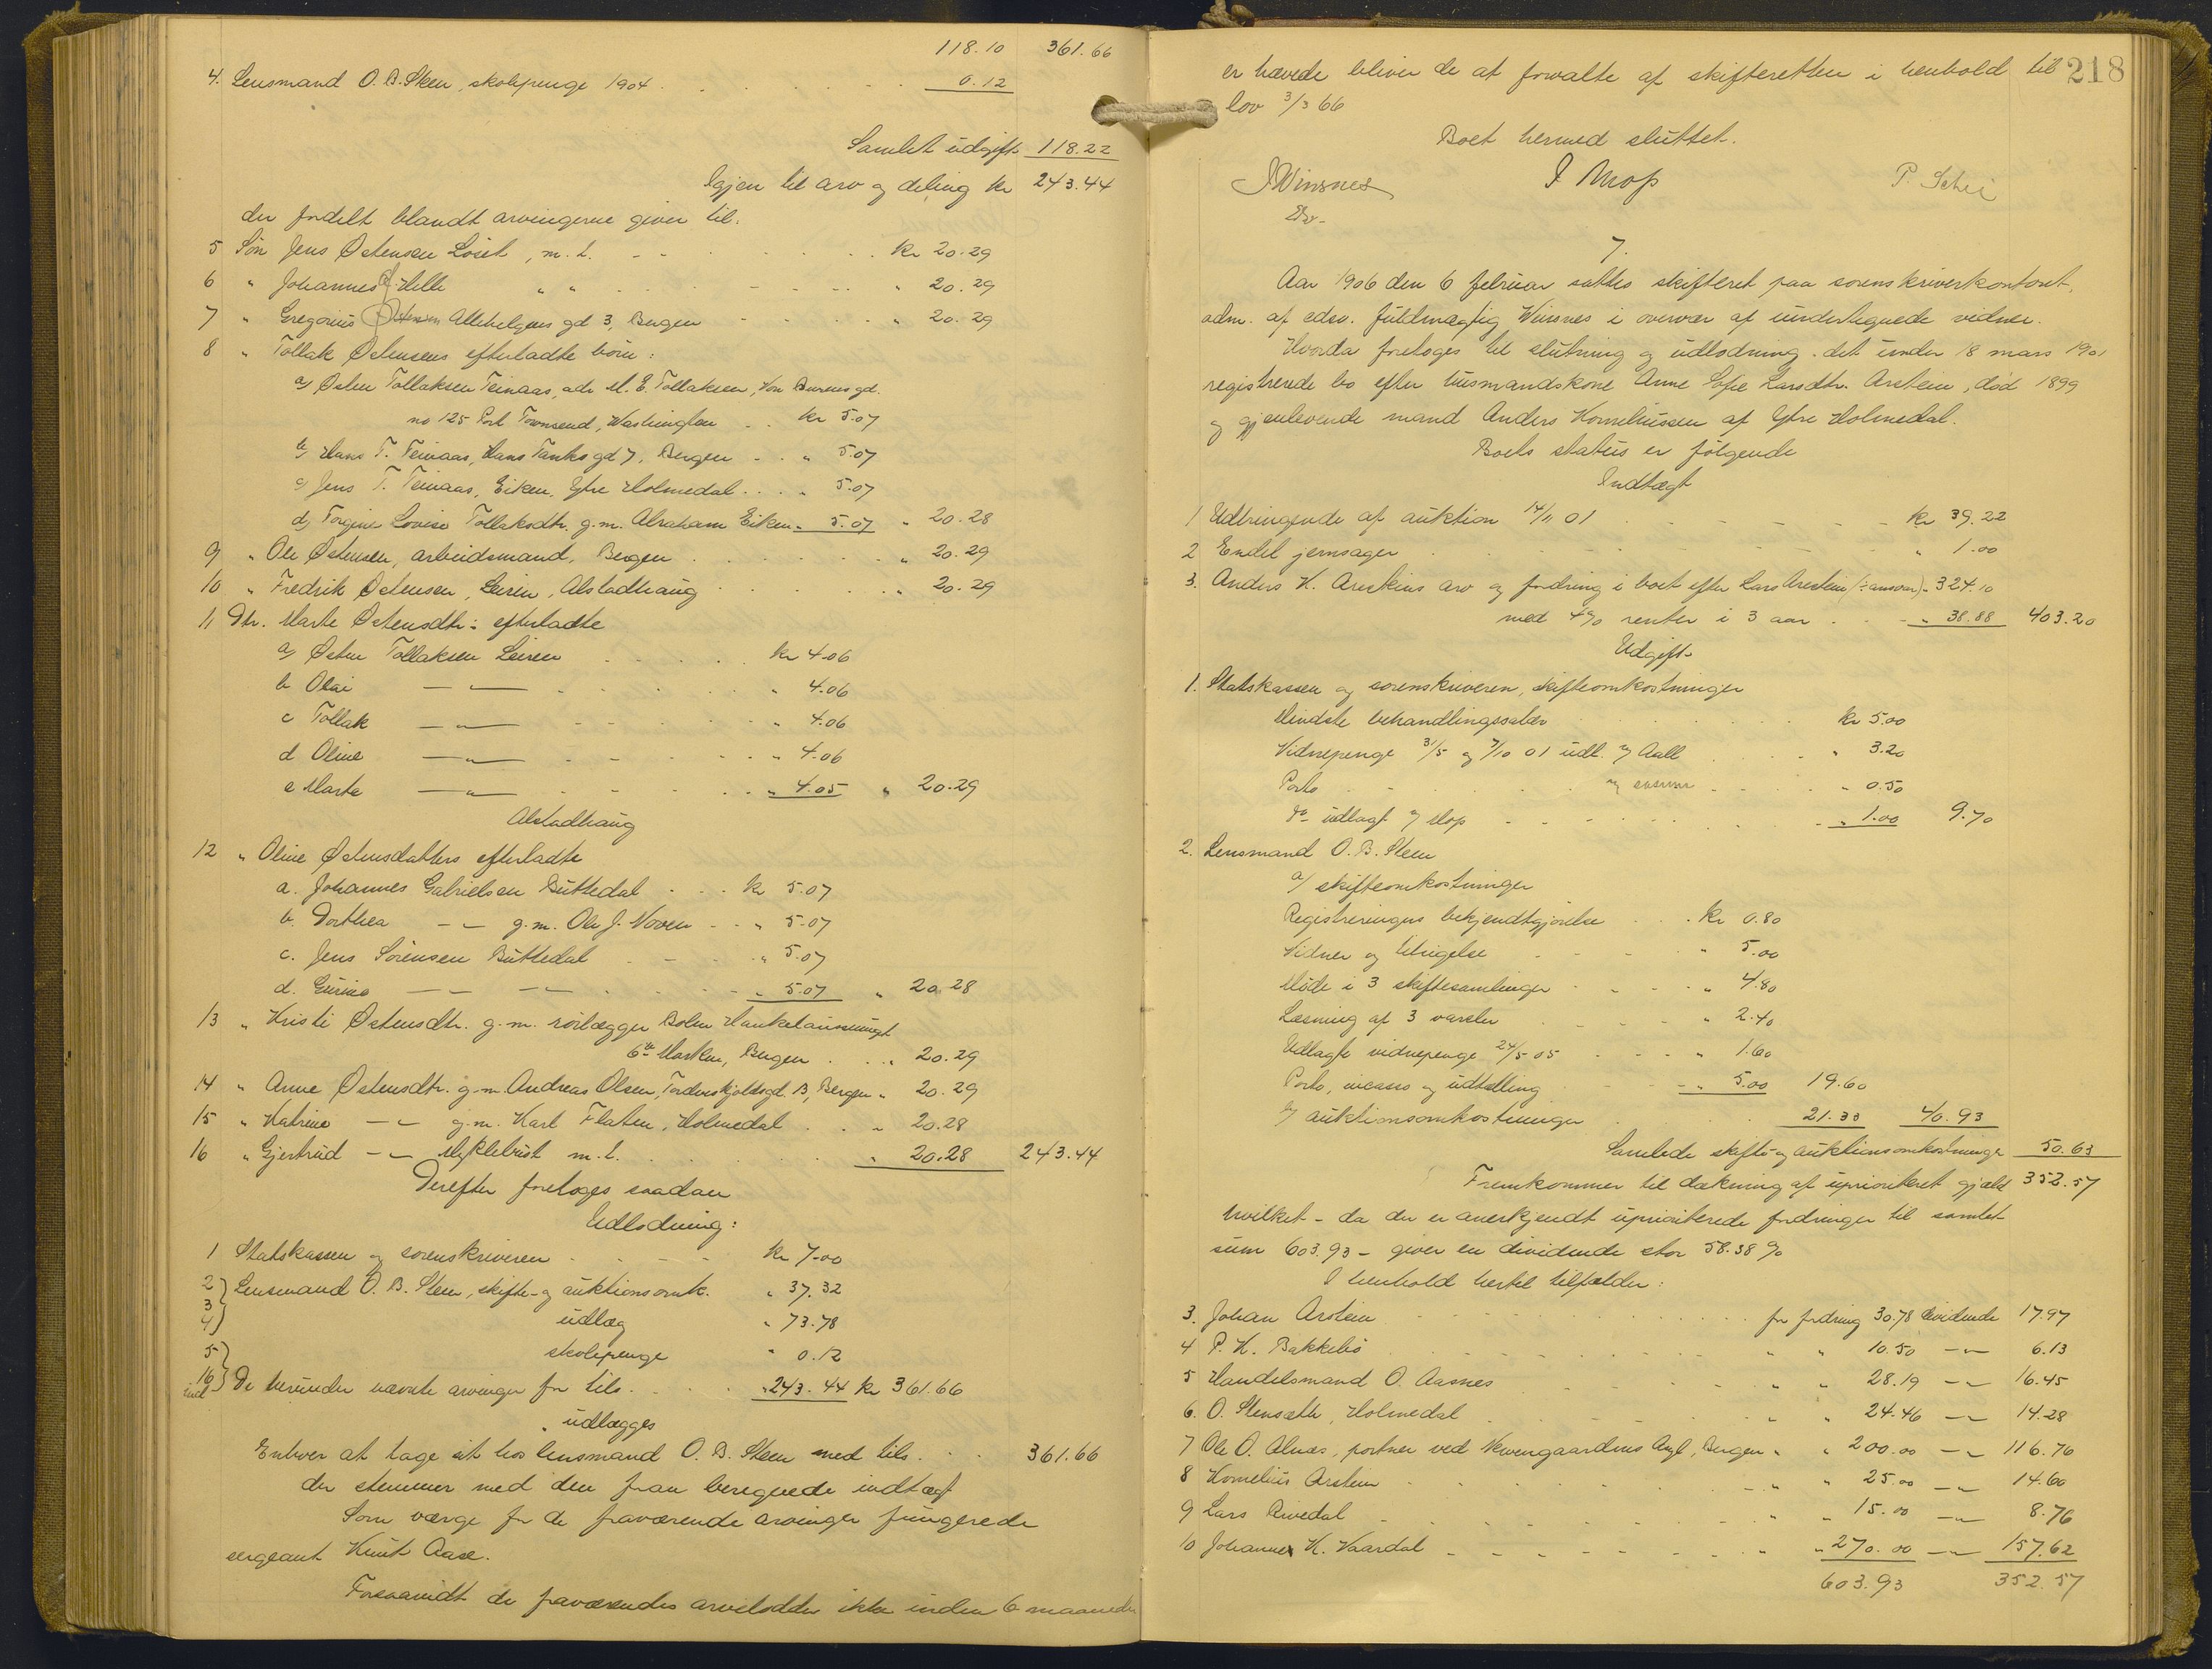 118.10 361.66
4. Lensmand O. B. Steen, skolepenge 1904 . . . 0.12
Samlet udgift 118.22
Igjen til arv og deling kr 243.44
der fordelt blandt arvingerne giver til.
5 Søn Jens Østensen Løset, m. l. - - kr 20.29
6 " Johannes Ø. Helle " " - - " 20.29
7 " Gregorius Østensen Allehelgens gd 3, Bergen - - " 20.29
8 " Tollak Østensens efterladte børn:
a) Østen Tollaksen Teinaas, adr M. E. Tollaksen, Von Burens gd.
no 125 Port Townsend, Washington . . kr 5.07
b) Hans T. Teinaas, Hans Tanks gd 7, Bergen - - " 5.07
c) Jens T. Teinaas, Eiken, Ytre Holmedal . . . " 5.07
d) Torgine Lovise Tollaksdtr. g. m. Abraham Eiken " 5.07 " 20.28
9 " Ole Østensen, arbeidsmand, Bergen . . . " 20.29
10 " Fredrik Østensen, Leiren, Alstadhaug . . . " 20.29
11 Dtr. Marte Østensdtr: efterladte
a) Østen Tollaksen Leiren . . . kr 4.06
b Olai — " — . . . " 4.06
c Tollak — " — . . . " 4.06
d Oline — " — . . . " 4.06
e Marte — " — . . . " 4.05 " 20.29
Alstadhaug
12 " Oline Østensdatters efterladte
a. Johannes Gabrielsen Buttedal . . . kr 5.07
b. Dorthea - " - g. m. Ole J. Voven - - " 5.07
c. Jens Sørensen Buttedal . . . " 5.07
d. Gurine - " - - " - . . . " 5.07 " 20.28
13 " Kristi Østensdtr. g. m. rørlægger Bolen
6te Marken, Bergen . . " 20.29
14 " Anne Østensdtr. g. m. Andreas Olsen, Tordenskjoldsgd. 13, Bergen " 20.29
15 " Katrine - " - g. m. Karl Flaten, Holmedal . . " 20.28
16 " Gjertrud - " - Myklebust m. l. . . . " 20.28 243.44
Derefter foretoges saadan
Udlodning:
1 Statskassen og sorenskriveren . . . kr 7.00
2 Lensmand O. B. Steen, skifte- og auktionsomk. " 37.32
3
4 udlæg " 73.78
5 skolepenge " 0.12
16 incl De herunder nævnte arvinger fr tils. . . " 243.44 kr 361.66
udlægges
Enhver at tage sit hos lensmand O. B. Steen med tils. . . 361.66
der stemmer med den foran beregnede indtægt
Som værge for de fraværende arvinger fungerede
sergeant Knut Aase.
Forsaavidt de fraværendes arvelodder ikke inden 6 maaneder
218
er hævede bliver de at forvalte af skifteretten i henhold til
lov 3/3 66
Boet hermed sluttet.
J Winsnes I Mop P. Schei
Edsv.
7.
Aar 1906 den 6 februar sattes skifteret paa sorenskriverkontoret,
adm. af edsv. fuldmægtig Winsnes i overvær af undertegnede vidner.
Hvorda foretoges til slutning og udlodning det under 18 mars 1901
registrerede bo efter husmandskone Anne Sofie Larsdtr. Arstein, død 1899
og gjenlevende mand Anders Korneliussen af Ytre Holmedal.
Boets status er følgende
Indtægt
1 Udbringende af auktion 14/11 01 . . . kr 39.22
2 Endel jernsager . . . " 1.00
3. Anders K. Arsteins arv og fordring i boet efter Lars Arstein (÷ ansvar) " 324.10
med 4% renter i 3 aar . . . " 38.88 403.20
Udgift
1. Statskassen og sorenskriveren, skifteomkostninger
Mindste behandlingssalær . . . kr 5.00
Vidnepenge 31/5 og 7/10 01 udl. af Aall . . . " 3.20
Porto . . . af samme . . . " 0.50
do udlagt af Mop . . . " 1.00 9.70
2. Lensmand O. B. Steen
a/ skifteomkostninger
Registreringens bekjendtgjørelse . . . kr 0.80
Vidner og tilsigelse . . . " 5.00
Møde i 3 skiftesamlinger . . . " 4.80
Læsning af 3 varsler . . . " 2.40
Udlagte vidnepenge 24/5 05 . . . " 1.60
Porto, incasso og udtælling . . . " 5.00 19.60
b/ auktionsomkostninger . . . 21.33 40.93
Samlede skifte og auktionsomkostninger 50.63
Fremkommer til dækning af uprioriteret gjæld 352.57
hvilket - da der er anerkjendt uprioriterede fordringer til samlet
sum 603.93 - giver en dividende stor 58.38 %
I henhold hertil tilfalder:
3. Johan Arstein . . . for fordring 30.78 dividende 17.97
4 P. K. Bakkebø . . . " " 10.50 - " - 6.13
5 Handelsmand O. Aasnes . . . " " 28.19 - " - 16.45
6. O. Stensæth, Holmedal . . . " " 24.46 - " - 14.28
7 Ole O. Alnæs, portner ved Nevengaardens Asyl, Bergen " " 200.00 - " - 116.76
8 Kornelius Arstein . . . " " 25.00 - " - 14.60
9 Lars Rivedal . . . " " 15.00 - " - 8.76
10 Johannes K. Vaardal . . . " " 270.00 - " - 157.62
603.93 352.57